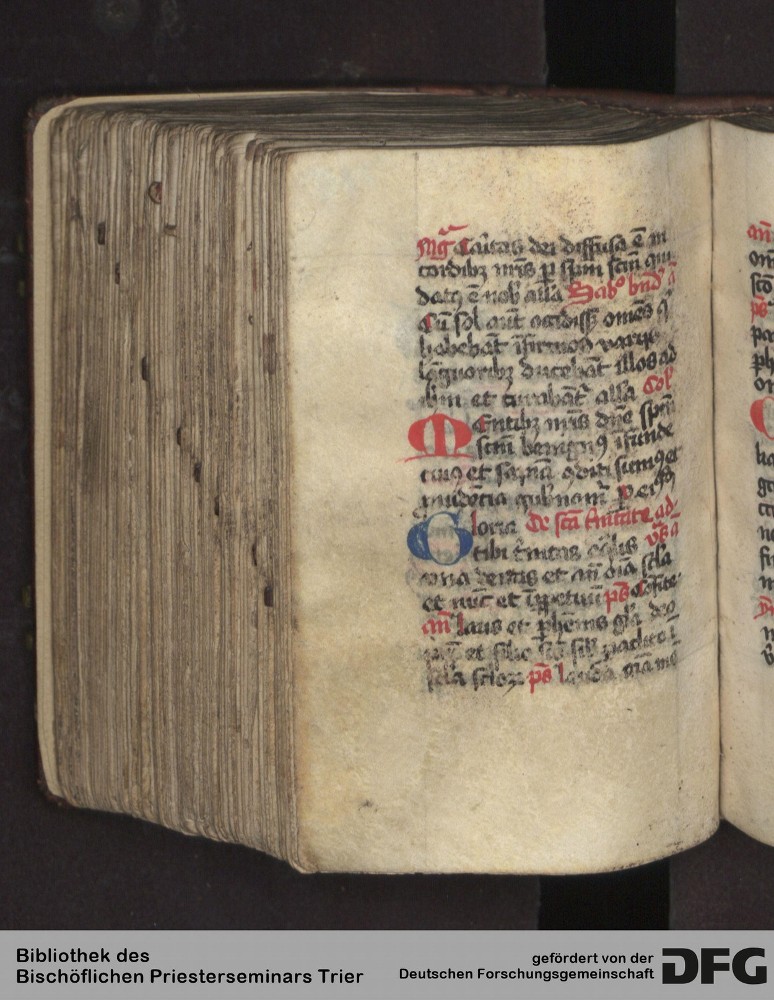 Mḡ Caritas dei diffusa ē in
cordibꝫ nr̄is ꝑ spm̄ scm̄ qui
datꝫ ē nob̄ all̄a Sabb̄o bn̄d
Cū sol aūt occidissꝫ omēs qͥ
habebāt īfirmos varijs
lāguoribꝫ ducebāt illos ad
ihm̄ et curabātᷣ all̄a Col̄
Mentibꝫ nr̄is dn̄e spm̄
scm̄ benignꝰ īfunde
cuiꝰ et sapīa ꝯditi sumꝰ et
ꝓuidētia gubnamᷣ P ei
Gloria De scā tͥnitate ad
tibi tͥnitas eq̄lis
una deitas et an̄ oīa scl̄a
et nūc et īꝑpetuū p̄s Cōfite
an̄ laus et ꝑhēnis gl̄a deo
pr̄i et filio scō sil̄ paclito ī
scl̄a scloꝝ p̄s lauda aīa mea
Bibliothek des
Bischöflichen Priesterseminars Trier
gefördert von der
Deutschen Forschungsgemeinschaft
DFG